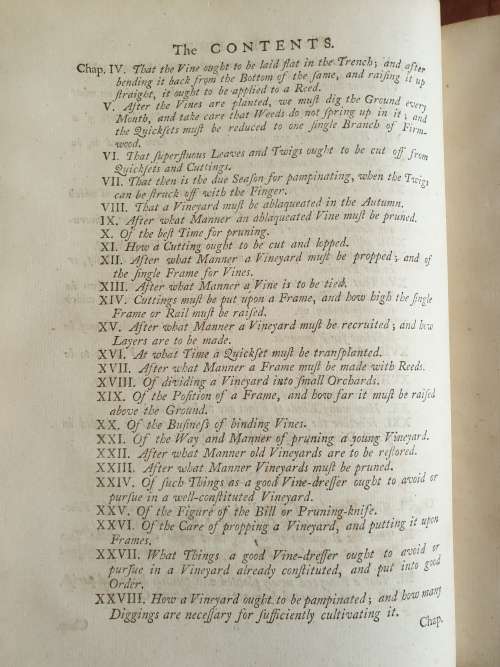 The CONTENTS.
Chap. IV. That the Vine ought to be laid flat in the Trench; and after
bending it back from the Bottom of the same, and raising it up
straight, it ought to be applied to a Reed.
V. After the Vines are planted, we must dig the Ground every
Month, and take care that Weeds do not spring up in it; and
the Quicksets must be reduced to one single Branch of Firm-
wood.
VI. That superfluous Leaves and Twigs ought to be cut off from
Quicksets and Cuttings.
VII. That then is the due Season for pampinating, when the Twigs
can be struck off with the Finger.
VIII. That a Vineyard must be ablaqueated in the Autumn.
IX. After what Manner an ablaqueated Vine must be pruned.
X. Of the best Time for pruning.
XI. How a Cutting ought to be cut and lopped.
XII. After what Manner a Vineyard must be propped; and of
the single Frame for Vines.
XIII. After what Manner a Vine is to be tied.
XIV. Cuttings must be put upon a Frame, and how high the single
Frame or Rail must be raised.
XV. After what Manner a Vineyard must be recruited; and how
Layers are to be made.
XVI. At what Time a Quickset must be transplanted.
XVII. After what Manner a Frame must be made with Reeds.
XVIII. Of dividing a Vineyard into small Orchards.
XIX. Of the Position of a Frame, and how far it must be raised
above the Ground.
XX. Of the Business of binding Vines.
XXI. Of the Way and Manner of pruning a young Vineyard.
XXII. After what Manner old Vineyards are to be restored.
XXIII. After what Manner Vineyards must be pruned.
XXIV. Of such Things as a good Vine-dresser ought to avoid or
pursue in a well-constituted Vineyard.
XXV. Of the Figure of the Bill or Pruning-knife.
XXVI. Of the Care of propping a Vineyard, and putting it upon
Frames.
XXVII. What Things a good Vine-dresser ought to avoid or
pursue in a Vineyard already constituted, and put into good
Order.
XXVIII. How a Vineyard ought to be pampinated; and how many
Diggings are necessary for sufficiently cultivating it.
Chap.